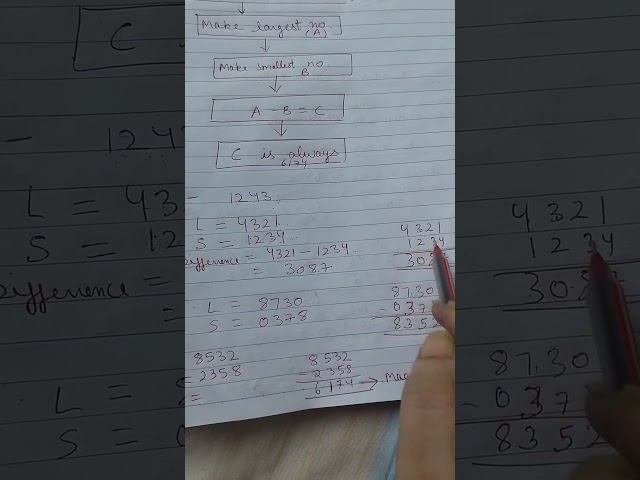 Make largest no.
(A)
Make smallest no
B
A - B = C
C is always
6174
- 1243.
L = 4321.
S = 1234.
Difference = 4321 - 1234
= 3087.
4321
1234
L = 8730
S = 0378
87.30
- 037
8352
8532
- 2358
=
8532
- 2358
6174 →